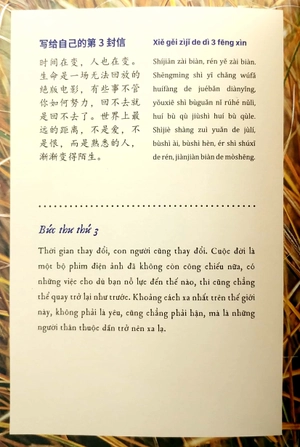 写给自己的第 3 封信
时间在变，人也在变。
生命是一场无法回放的
绝版电影，有些事不管
你如何努力，回不去就
是回不去了。世界上最
远的距离，不是爱，不
是恨，而是熟悉的人，
渐渐变得陌生。
Xiě gěi zìjǐ de dì 3 fēng xìn
Shíjiān zài biàn, rén yě zài biàn.
Shēngmìng shì yī chǎng wúfǎ
huífàng de juébǎn diànyǐng,
yǒuxiē shì bùguǎn nǐ rúhé nǔlì,
huí bù qù jiùshì huí bù qùle.
Shìjiè shàng zuì yuǎn de jùlí,
bùshì ài, bùshì hèn, ér shì shúxī
de rén, jiànjiàn biàn de mòshēng.
Bức thư thứ 3
Thời gian thay đổi, con người cũng thay đổi. Cuộc đời là
một bộ phim điện ảnh đã không còn công chiếu nữa, có
những việc cho dù bạn nỗ lực đến thế nào, thì cũng chẳng
thể quay trở lại như trước. Khoảng cách xa nhất trên thế giới
này, không phải là yêu, cũng chẳng phải hận, mà là những
người thân thuộc dần trở nên xa lạ.